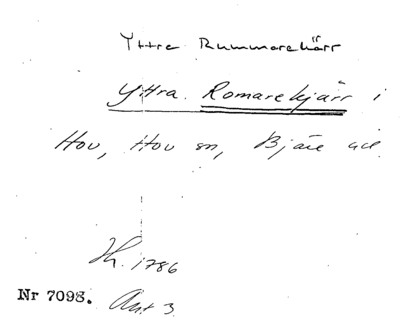 Yttre Rummarekärr
Yttra Romarekjärr i
Hov, Hov sn, Bjäre hd
H. 1786
Nr 7098. Akt 3